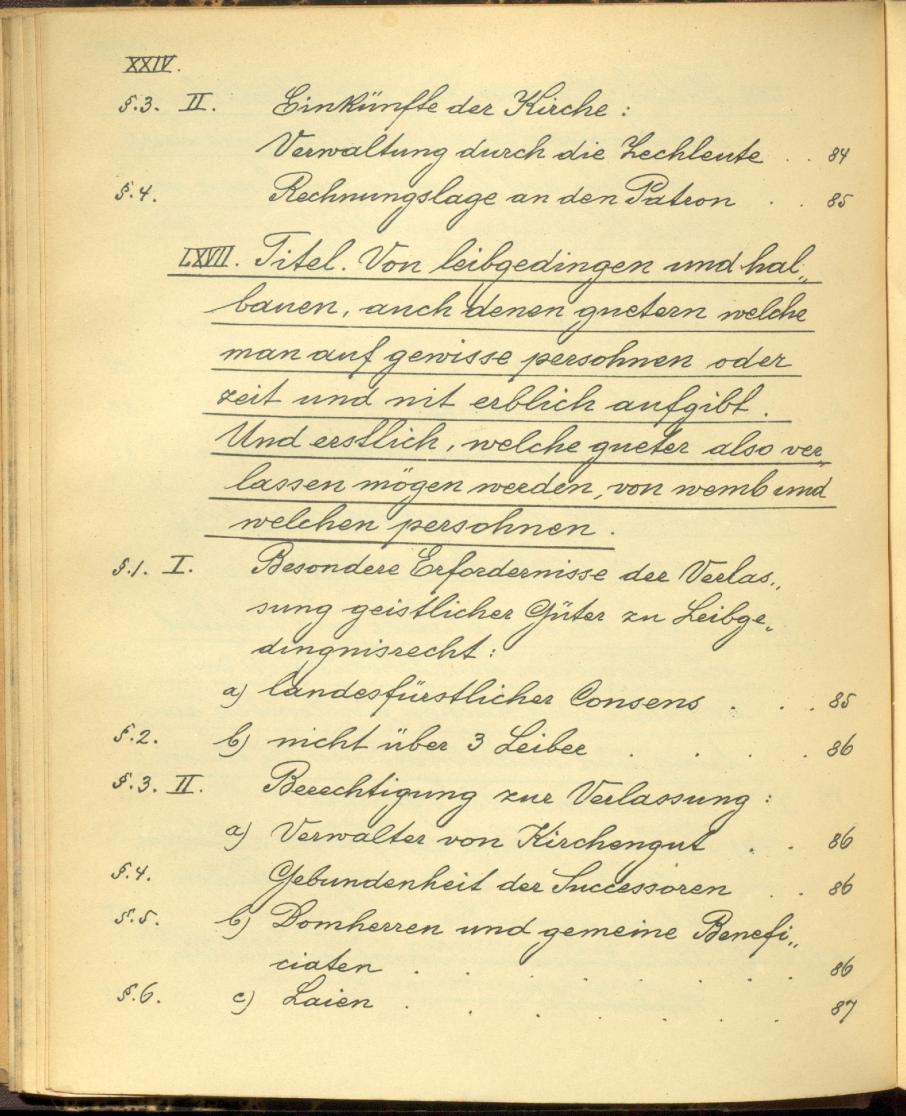 XXIV.
§.3. II. Einkünfte der Kirche :
Verwaltung durch die Zechleute . . 84
§.4. Rechnungslage an den Patron . . 85
LXVII. Titel. Von leibgedingen und hal„
bauen, auch denen guetern welche
man auf gewisse persohnen oder
zeit und nit erblich aufgibt.
Und erstlich, welche gueter also ver„
lassen mögen werden, von wemb und
welchen persohnen.
§.1. I. Besondere Erfordernisse der Verlas„
sung geistlicher Güter zu Leibge„
dingnisrecht :
a) landesfürstlicher Consens . . . 85
§.2. b) nicht über 3 Leiber . . . . 86
§.3. II. Berechtigung zur Verlassung :
a) Verwalter von Kirchengut . . 86
§.4. Gebundenheit der Successoren . . 86
§.5. b) Domherren und gemeine Benefi„
ciaten . . . . . . . 86
§.6. c) Laien . . . . . . . 87